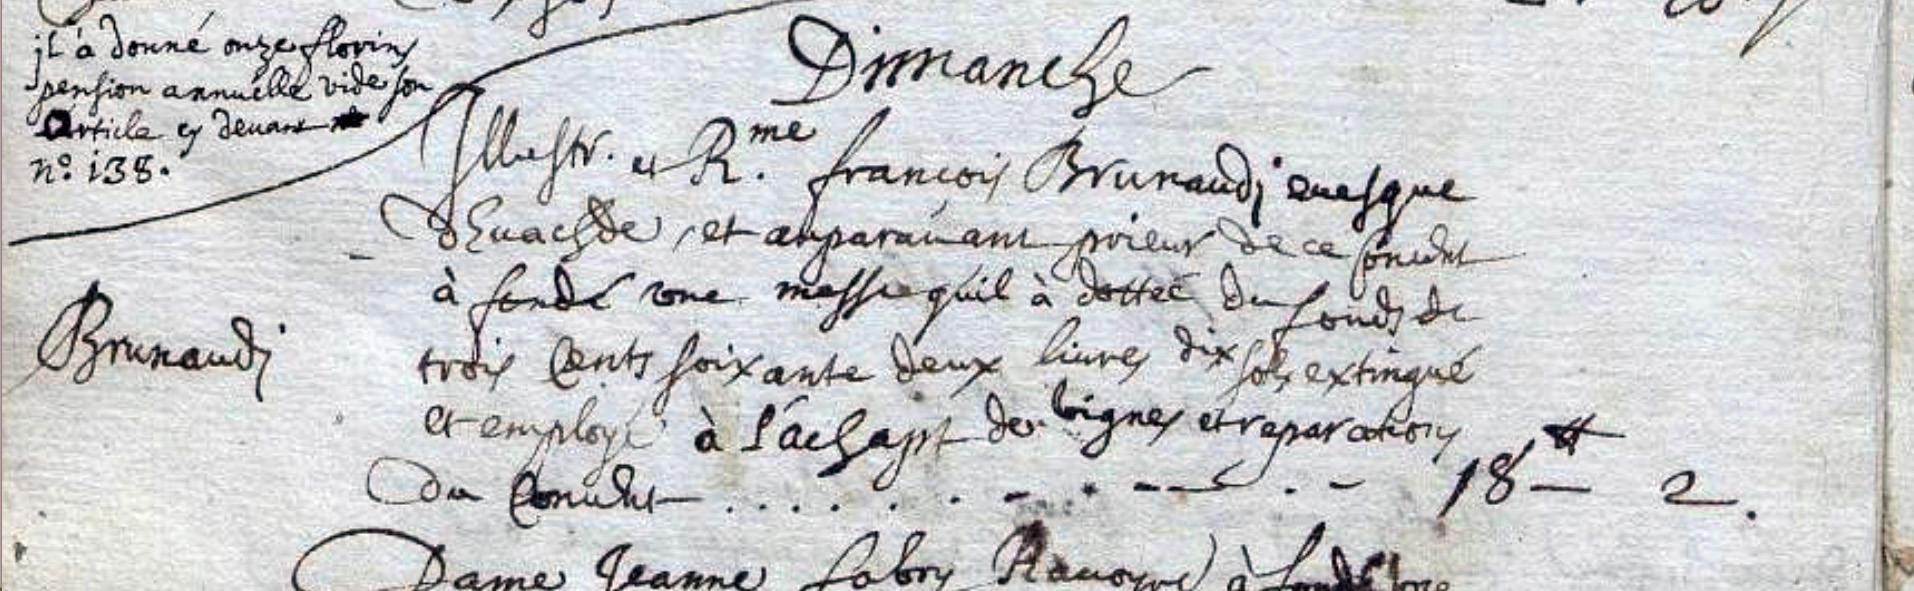 Dimanche
il a donné onze florins
pension annuelle vide son
Article cy devant
n.º 138.
Illustr. et R.me francois Brunaudj euesque
et auparauant prieur de ce conuent
à fondé vne messe quil à dottée du fonds de
trois Cents soixante deux liures dix sols extingué
et employé à l'achapt des vignes et reparations
du Conuent . . . . . . . 18 ₶ — 2.
Brunaudj
Dame Jeanne fabry à fondé vne